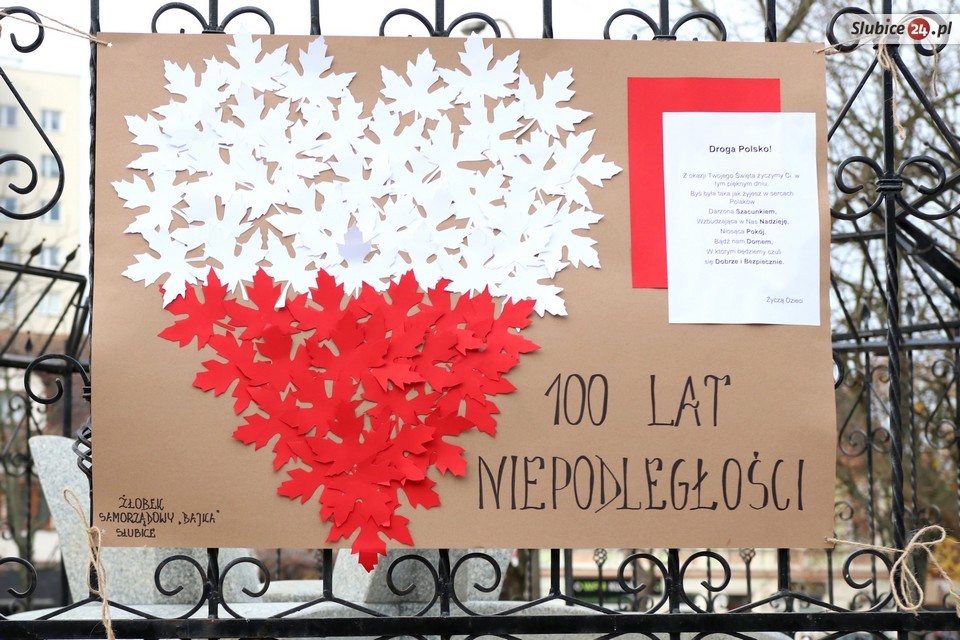 Słubice24.pl
Droga Polsko!
Z okazji Twojego Święta życzymy Ci w
tym pięknym dniu
Byś była taka jak żyjesz w sercach
Polaków
Darzona Szacunkiem,
Wzbudzająca w Nas Nadzieję,
Niosąca Pokój.
Bądź nam Domem,
W którym będziemy czuli
się Dobrze i Bezpiecznie.
Życzą Dzieci
100 LAT
NIEPODLEGŁOŚCI
ŻŁOBEK
SAMORZĄDOWY „BAJKA"
SŁUBICE